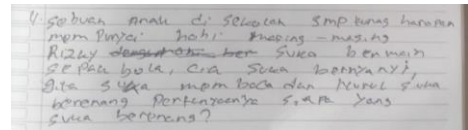 4. Sebuah Anak di Sekolah SMP tunas harapan
mempunyai hobi masing-masing
Rizky suka bermain
Sepak bola, Cia Suka bernyanyi,
gita suka membaca dan Nurul suka
berenang Pertanyaanya siapa yang
suka berenang?